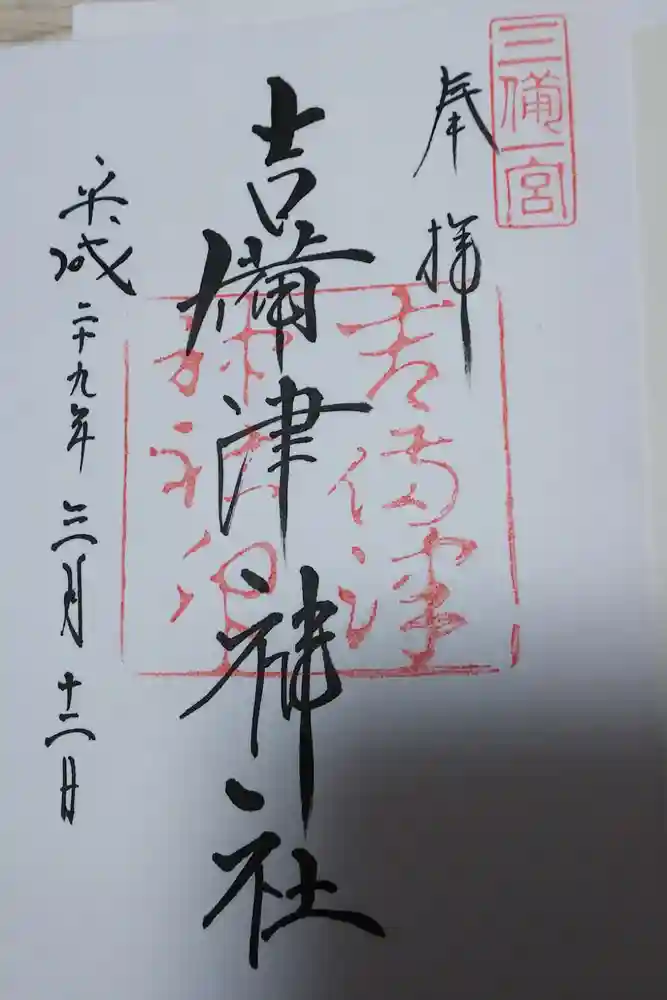 三備一宮
奉拝
吉備津
神社印
吉備津神社
平成二十九年三月十二日